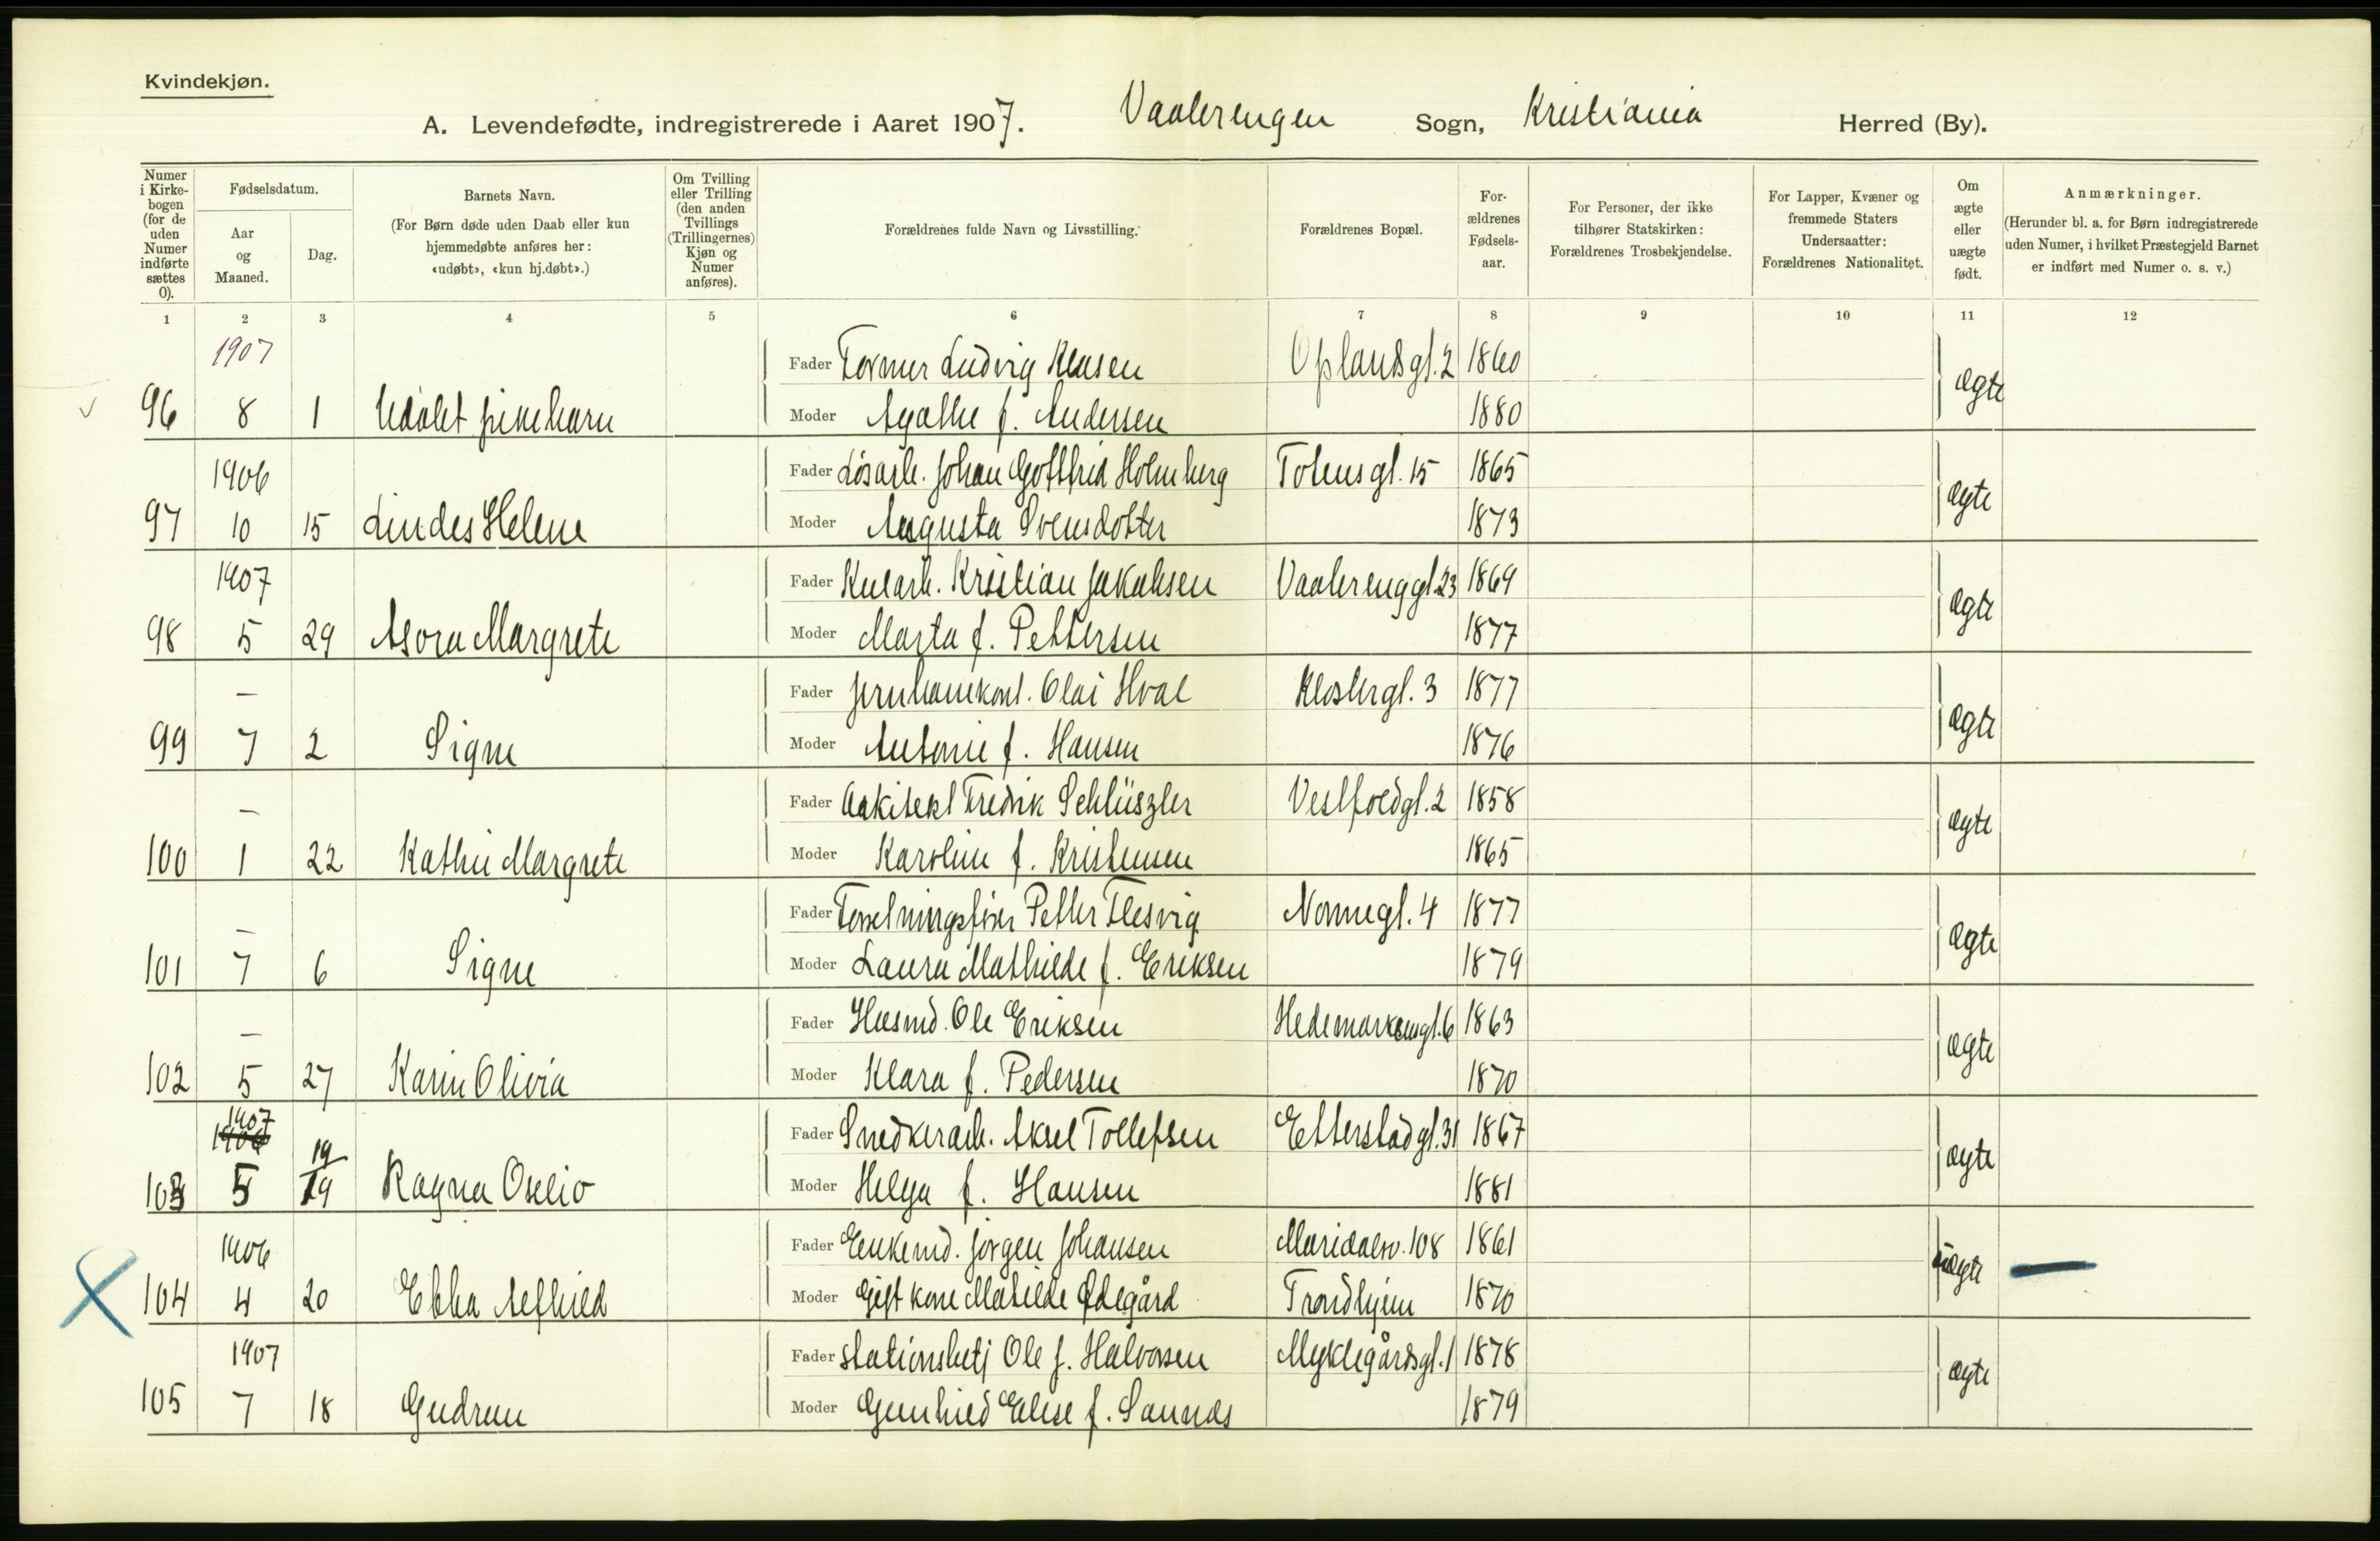 Kvindekjøn.
A. Levendefødte, indregistrerede i Aaret 1907. Vaalerengen Sogn, Kristiania Herred (By).
Numer i Kirkebogen (for de uden Numer indførte sættes 0).
Fødselsdatum.
Aar og Maaned.
Dag.
Barnets Navn.
(For Børn døde uden Daab eller kun hjemmedøbte anføres her: «udøbt», «kun hj.døbt».)
Om Tvilling eller Trilling (den anden Tvillings (Trillingernes) Kjøn og Numer anføres).
Forældrenes fulde Navn og Livsstilling.
Forældrenes Bopæl.
Forældrenes Fødselsaar.
For Personer, der ikke tilhører Statskirken: Forældrenes Trosbekjendelse.
For Lapper, Kvæner og fremmede Staters Undersaatter: Forældrenes Nationalitet.
Om ægte eller uægte født.
Anmærkninger.
(Herunder bl. a. for Børn indregistrerede uden Numer, i hvilket Præstegjeld Barnet er indført med Numer o. s. v.)
1 2 3 4 5 6 7 8 9 10 11 12
1907 Fader Former Ludvig Klausen Oplandsgt. 2 1860 ægte
96 8 1 Udøbt pikebarn Moder Agathe f. Andersen 1880
1906 Fader Løsarb. Johan Gottfrid Holmberg Totensgt. 15 1865 ægte
97 10 15 Lindes Helene Moder Augusta Svensdotter 1873
1907 Fader Kularb. Kristian Jakobsen Vaalerenggt. 23 1869 ægte
98 5 29 Asora Margrete Moder Marta f. Pettersen 1877
— Fader Jernbanekont. Olai Hval Klostergt. 3 1877 ægte
99 7 2 Signe Moder Antonie f. Hansen 1876
— Fader Arkitekt Fredrik Schlüszler Vestfoldgt. 2 1858 ægte
100 1 22 Kathie Margrete Moder Karoline f. Kristensen 1865
— Fader Petter Flesvig Nonnegt. 4 1877 ægte
101 7 6 Signe Moder Laura Mathilde f. Eriksen 1879
— Fader Husmd. Ole Eriksen Hedemarkensgt. 6 1863 ægte
102 5 27 Karin Olivia Moder Klara f. Pedersen 1870
1907 Fader Snedkerarb. Aksel Tollefsen Etterstadgt. 31 1867 ægte
103 5 19 Ragna Oselio Moder Helga f. Hansen 1881
1906 Fader Enkemd. Jørgen Johansen Maridalsv. 108 1861 uægte —
104 4 20 Ebba Alfhild Moder Gift kone Matilde Ødegård Trondhjem 1870
1907 Fader Stationsbetj Ole J. Halvorsen Myklegårdsgt. 1 1878 ægte
105 7 18 Gudrun Moder Gunhild Elise f. Sannes 1879